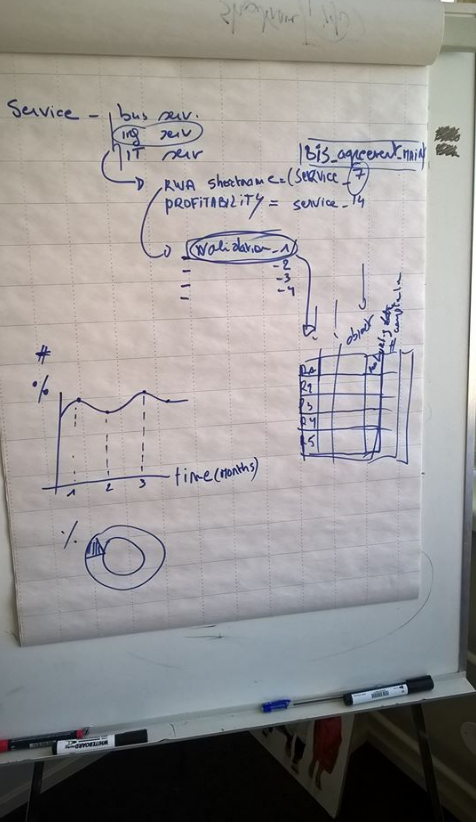 Service - bus serv.
ing serv
IT serv
BIS_agreement_main
RWA shortname = (service_7
PROFITABILITY = service_14
Validation_1
-2
-3
-4
object
R1
R2
R3
R4
R5
#
%
1 2 3
time (months)
%
WHITEBOARD